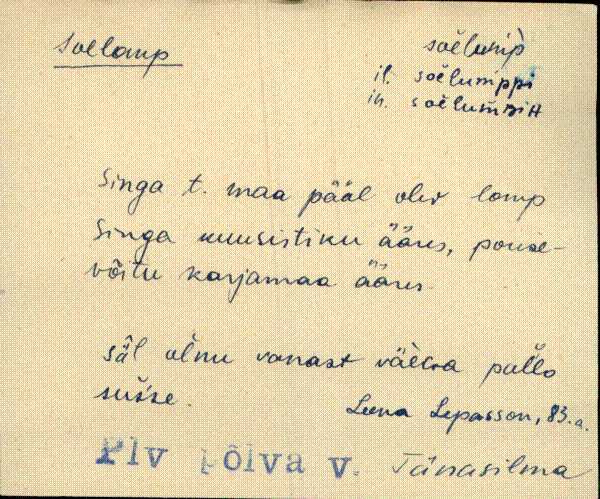 Soelomp
soëlump
il. soëlumppi
in.
Singa t. maa pääl olev lomp
Singa kuusistiku ääres, porise-
võitu karjamaa ääres.
Sääl olnu vanast väega pallo
susse.
Leena Lepasson, 83 a.
Plv Põlva v. Tänasilma